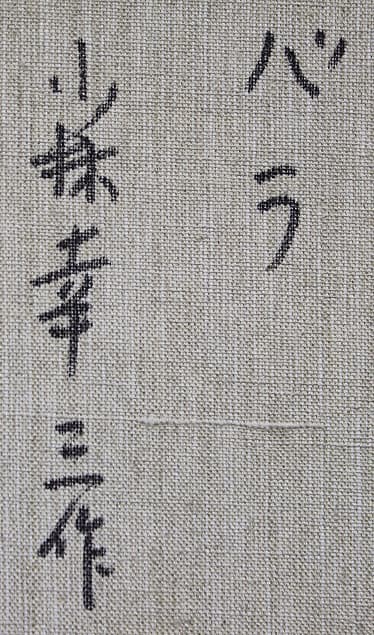 バラ
小林幸三作